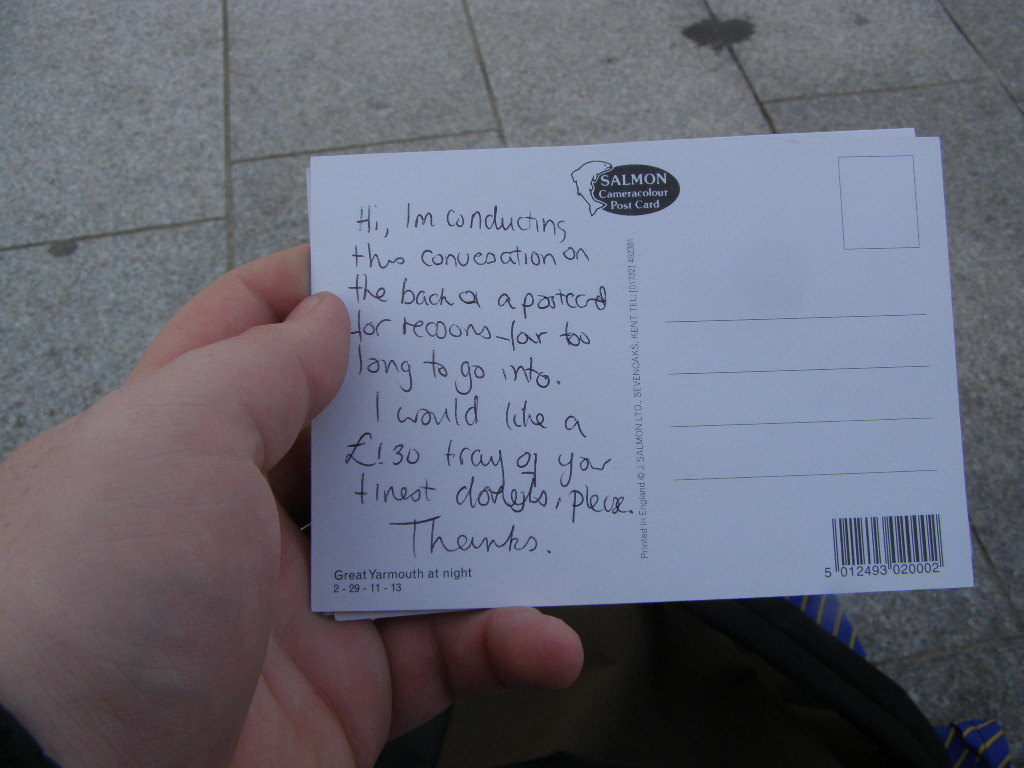 SALMON
Cameracolour
Post Card
Hi, Im conducting
this convesation on
the back of a postcard
for reasons far too
long to go into.
I would like a
£1.30 tray of your
finest doughnuts, please.
Thanks.
Great Yarmouth at night
2 - 29 - 11 - 13
Printed in England © J. SALMON LTD., SEVENOAKS, KENT. TEL: (01732) 452381
5 012493 020002